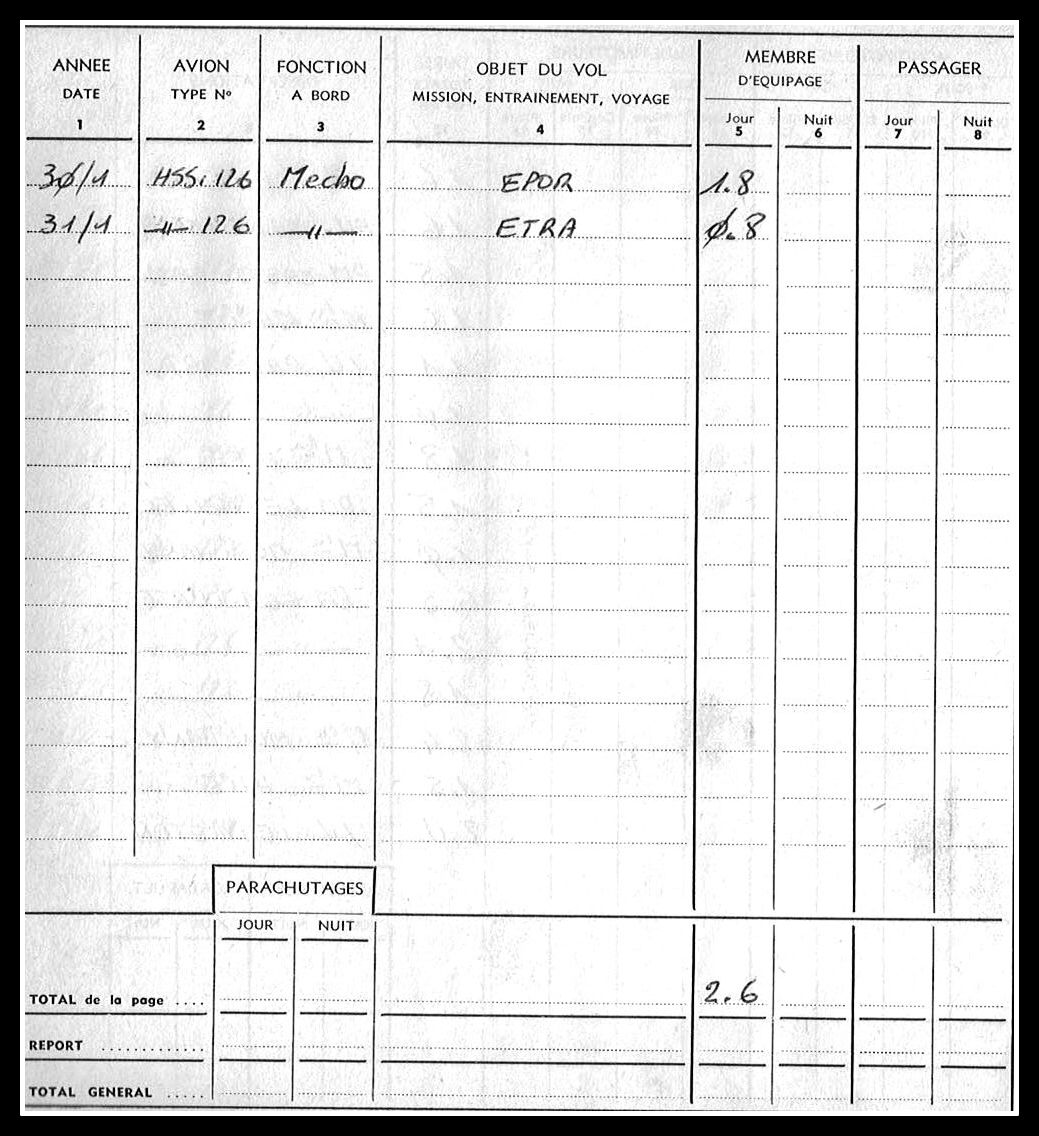 ANNEE AVION FONCTION OBJET DU VOL MEMBRE PASSAGER
DATE TYPE Nº A BORD MISSION, ENTRAINEMENT, VOYAGE D'EQUIPAGE
Jour Nuit Jour Nuit
1 2 3 4 5 6 7 8
3ø/1 HSS. 126 Mecbo EPOR 1.8
31/1 —"— 126 —"— ETRA ø.8
PARACHUTAGES
JOUR NUIT
TOTAL de la page .... 2.6
REPORT ............
TOTAL GENERAL .....